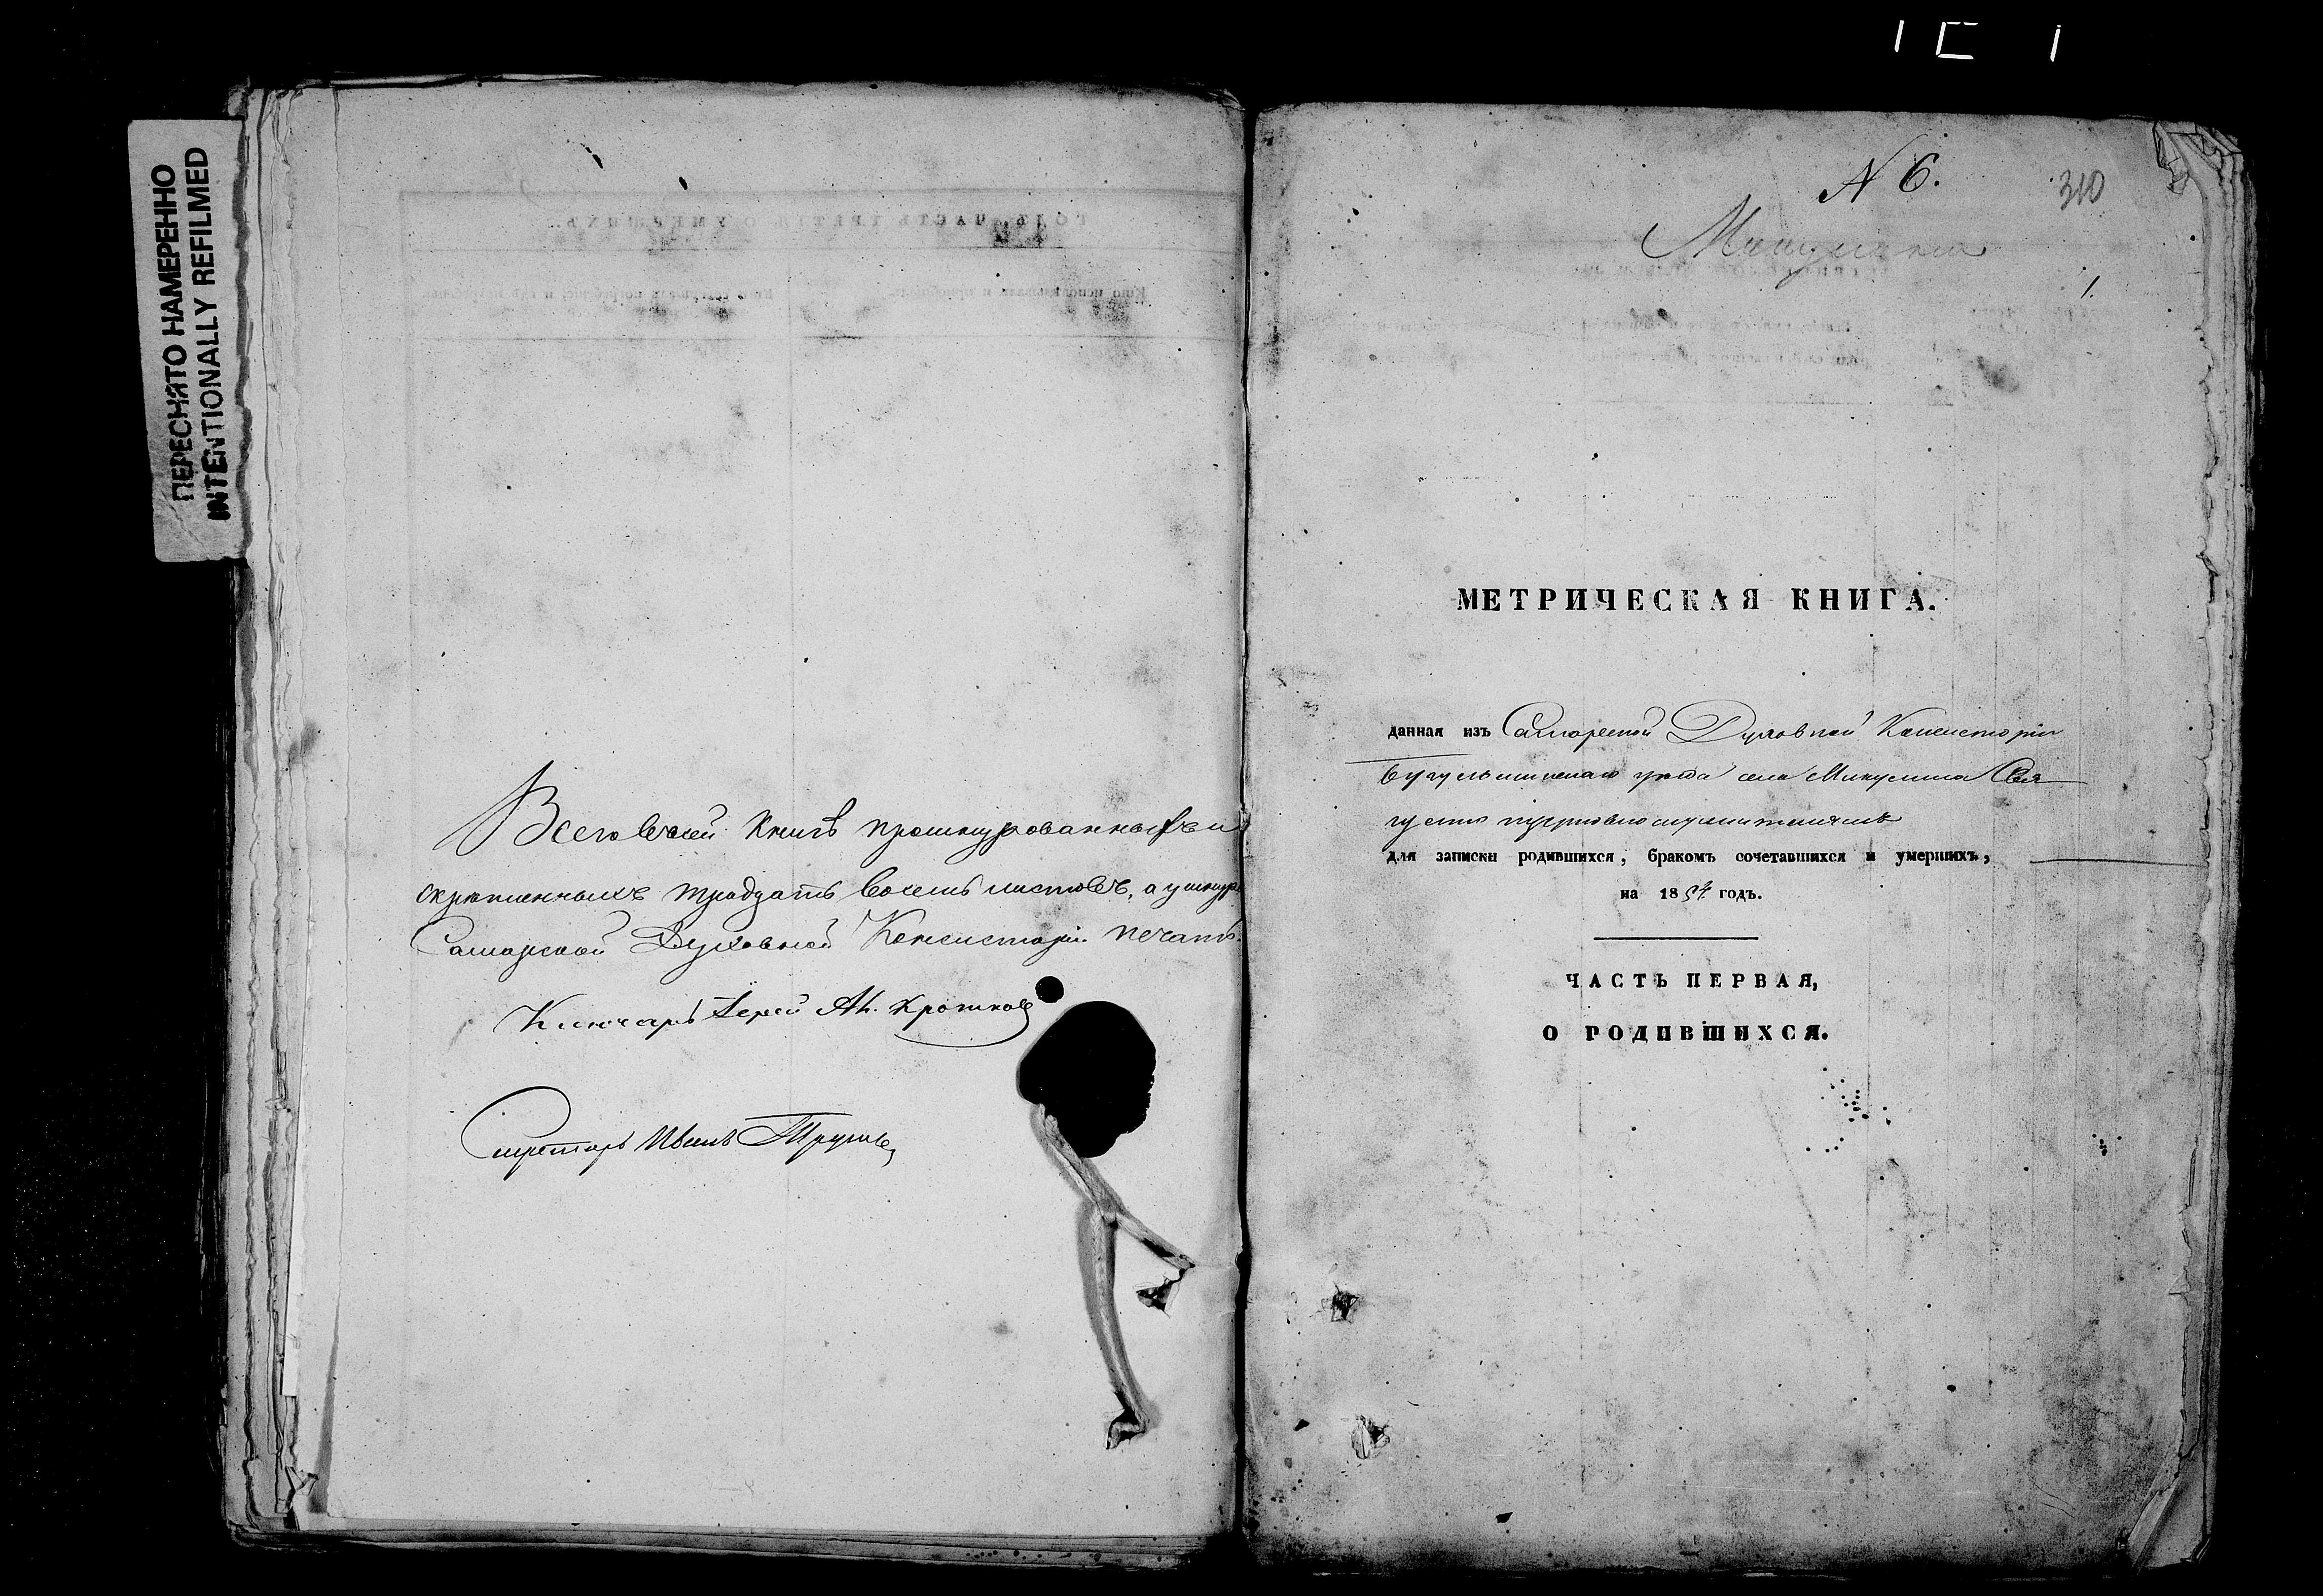 ПЕРЕСНЯТО НАМЕРЕННО
INTENTIONALLY REFILMED
Всего въ сей Книгѣ прошнурованныхъ и
скрѣпленныхъ тридцать восемь листовъ, а у шнура
Самарской Духовной Консисторіи печать.
Ключарь Іерей
Секретарь Иванъ
N 6.
310
Микулина
1.
МЕТРИЧЕСКАЯ КНИГА.
данная изъ Самарской Духовной Консисторіи
Бугульминскаго уѣзда села Микулина
для записки родившихся, бракомъ сочетавшихся и умершихъ,
на 18 годъ.
ЧАСТЬ ПЕРВАЯ,
О РОДИВШИХСЯ.